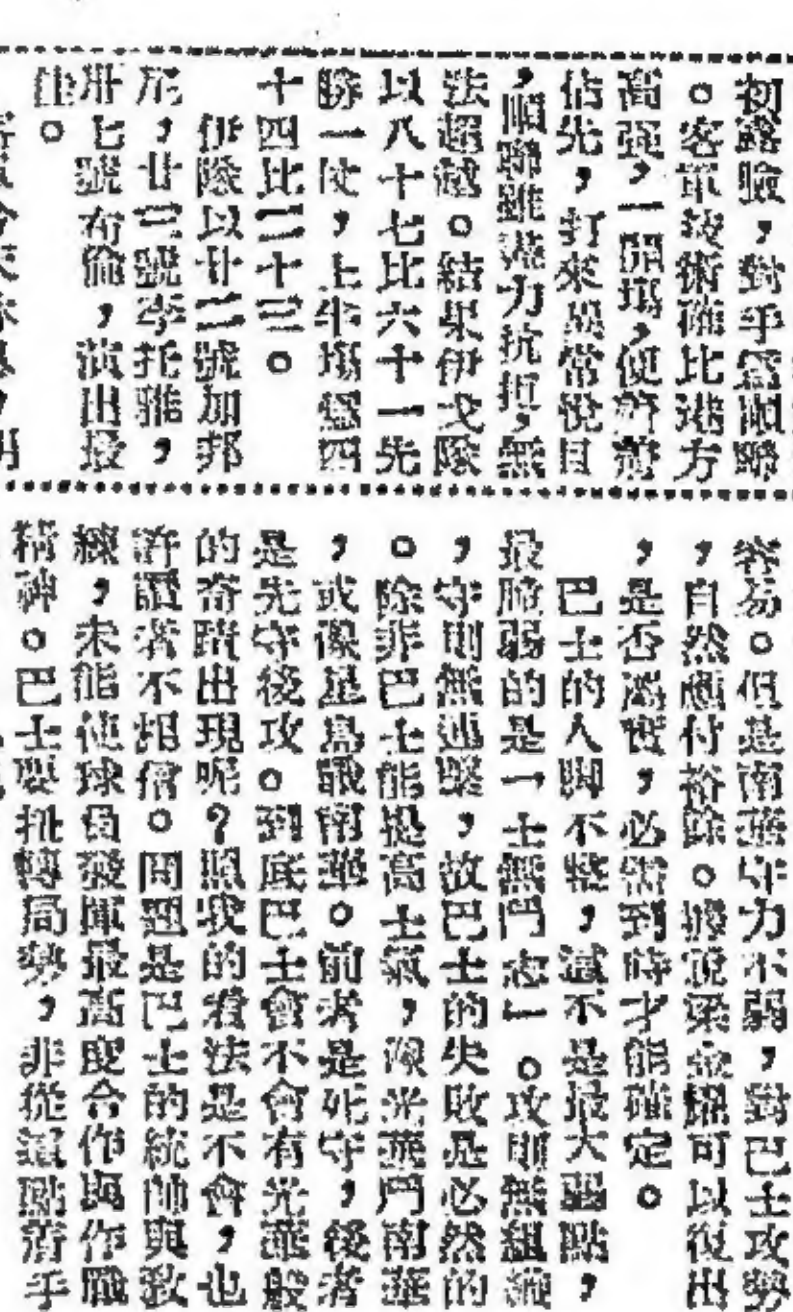 初露臉，對手為順聯
。客軍技術確比港方
高强，一開塲，便著著
佔先，打來異常悅目
，順聯雖進力抗拒，無
法超越。結果伊戈隊
以八十七比六十一先
勝一仗，上半塲為四
十四比二十三。
伊隊以廿二號加邦
尼，廿三號李托雅，
卅七號布倫，演出最
佳。
容易。但是南華守力不弱，對巴士攻勢
，自然應付裕餘。據說梁金耀可以復出
，是否屬實，必需到時才能確定。
巴士的人脚不整，還不是最大弱點，
最脆弱的是「士無鬥志」。攻則無組織
，守則無連繫，故巴士的失敗是必然的
。除非巴士能提高士氣，像光華鬥南華
，或像星島戰南華。前者是死守，後者
是先守後攻。到底巴士會不會有光華般
的奇蹟出現呢？照我的看法是不會，也
許讀者不相信。問題是巴士的統帥與教
練，未能使球員發揮最高度合作與作戰
精神。巴士要扭轉局勢，非從這點着手